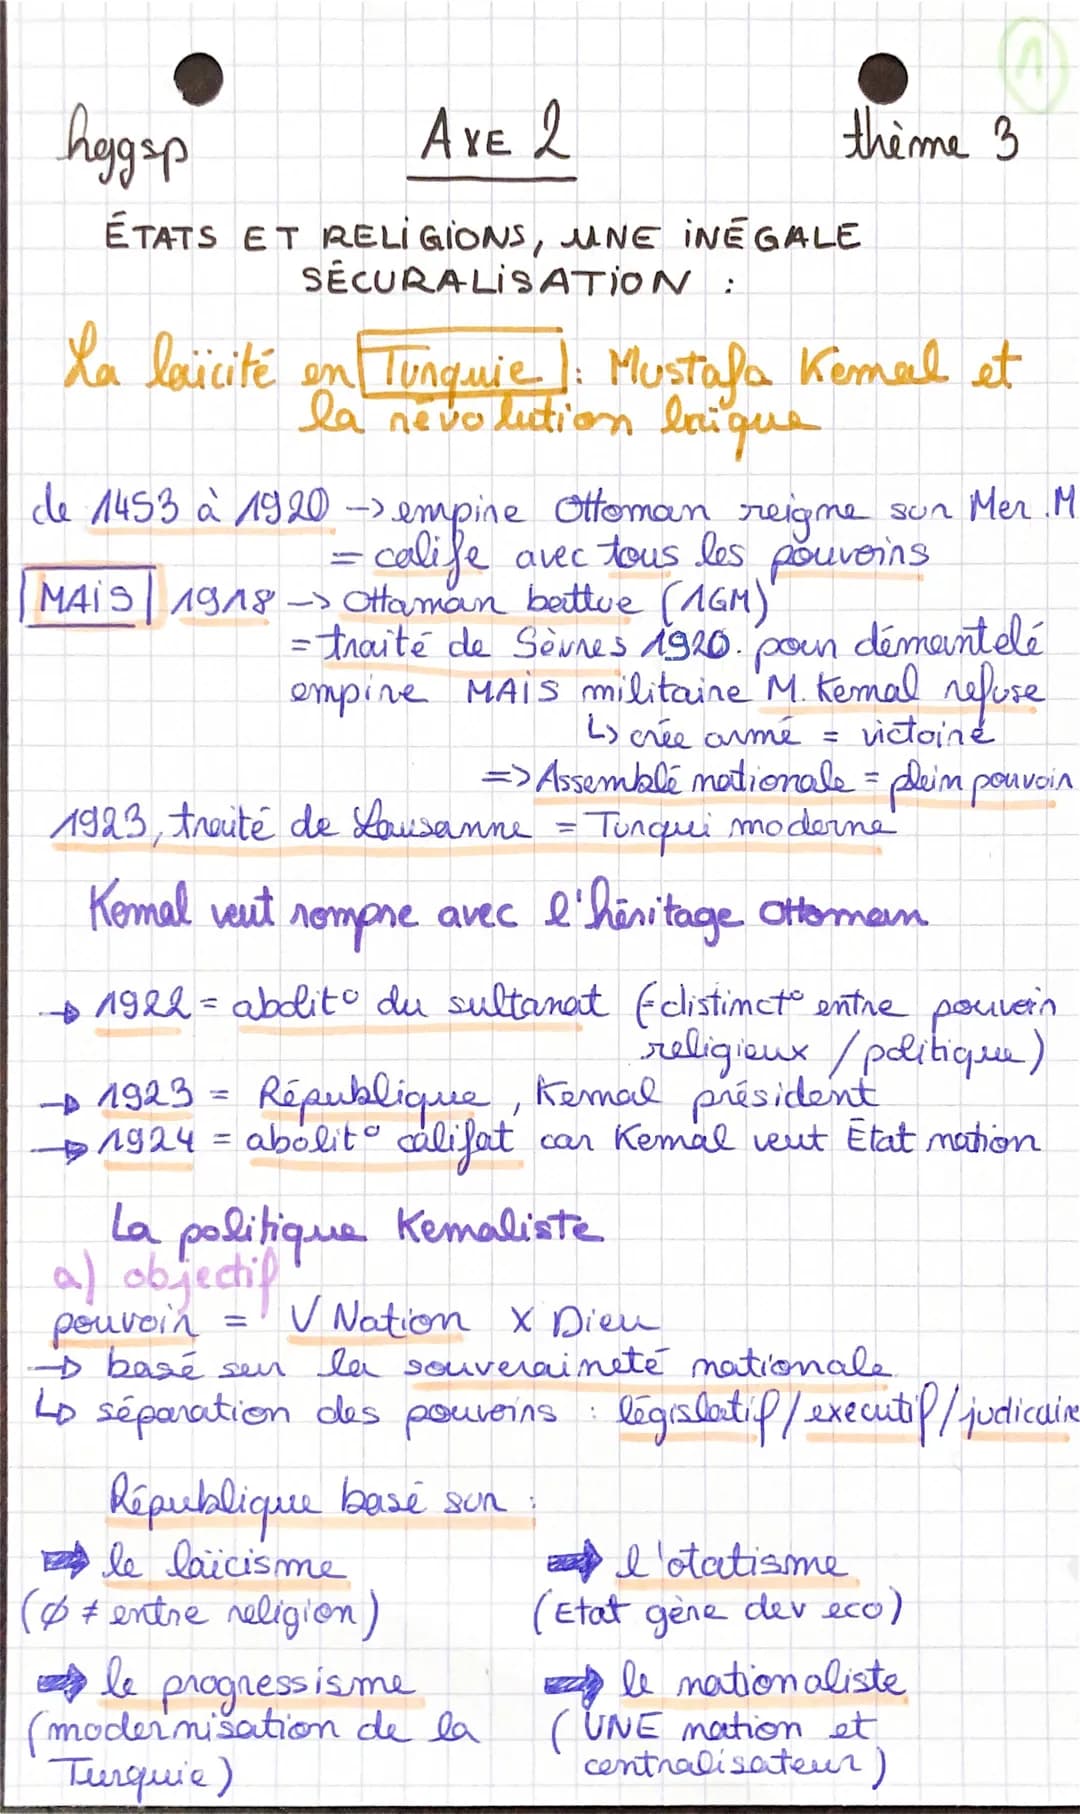 1
hggsp
AXE 2
thème 3
ÉTATS ET RELIGIONS, UNE INÉGALE
SÉCURALISATION :
La laïcité en Turquie : Mustafa Kemal et
la révolution laïque
de 1453 à 1920 -> empire Ottoman reigme sur Mer.M
= calife avec tous les pouvoirs
MAIS 1918 -> Ottaman battue (1GM)
= traité de Sèvres 1920. pour démantelé
empire MAIS militaire M. Kemal refuse
↳ crée armé = victoire
=> Assemblé nationale = plein pouvoir
1923, traité de Lausanne = Turqui moderne
Kemal veut rompre avec l'héritage Ottoman
→ 1922 = abolit° du sultanat (= distinct° entre pouvoir
religieux / politique)
→ 1923 = République, Kemal président
→ 1924 = abolit° califat car Kemal veut État nation
La politique Kemaliste
a) objectif
pouvoir = V Nation X Dieu
→ basé sur la souveraineté nationale
↳ séparation des pouvoirs : législatif / executif / judicaire
République basé sur :
➡ le laïcisme
(Ø ≠ entre religion)
➡ l'otatisme
(Etat gère dev eco)
➡ le progressisme
(modernisation de la
Turquie)
➡ le nationaliste
(UNE nation et
centralisateur)